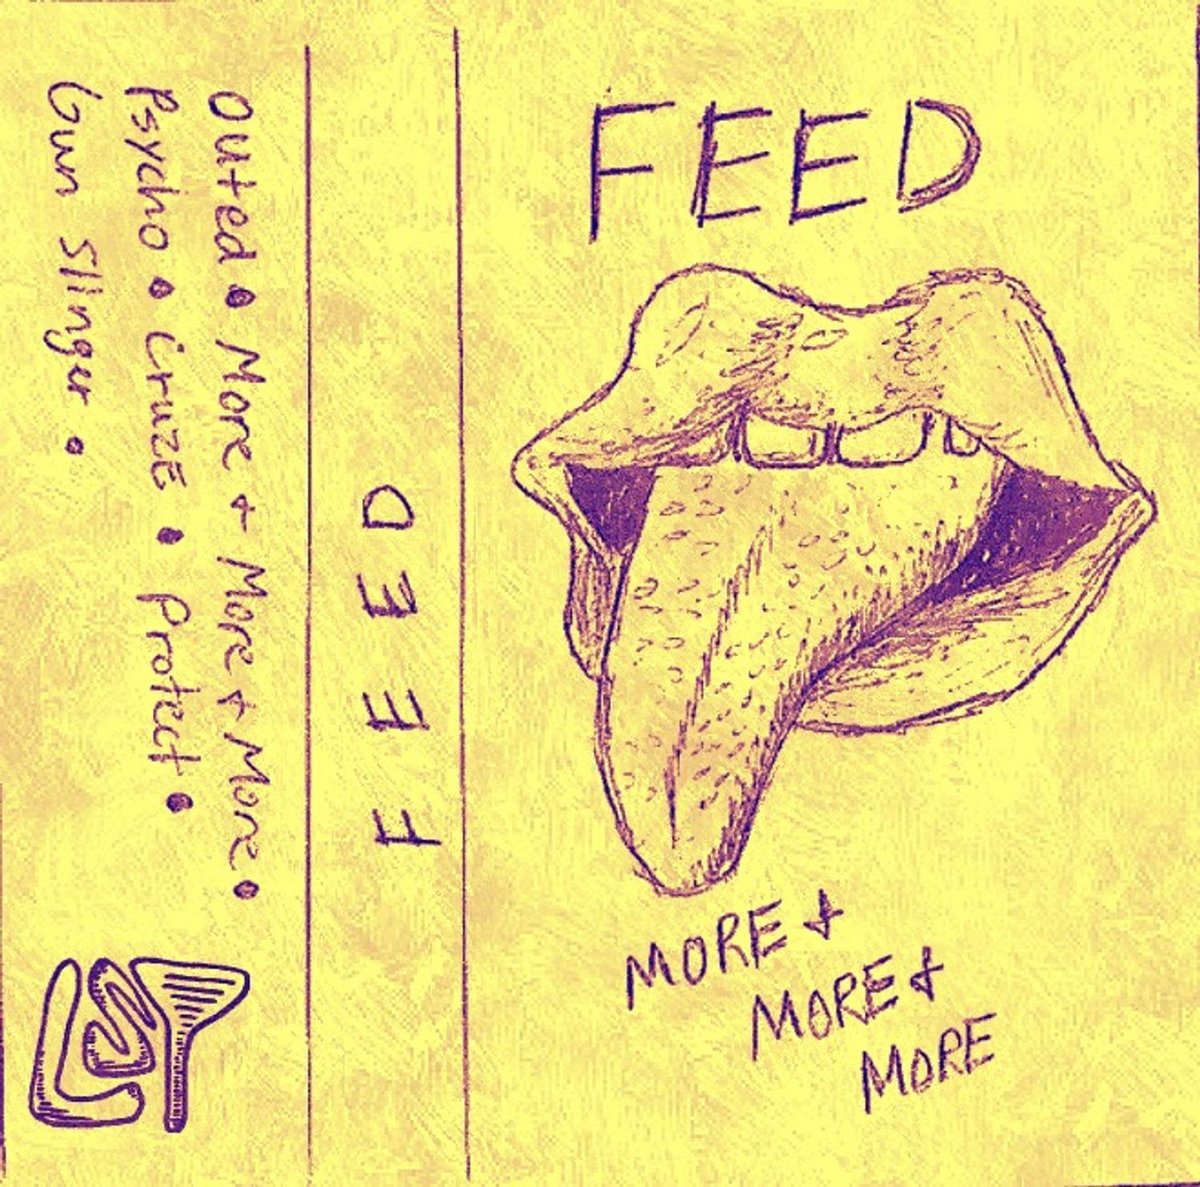 FEED
MORE +
MORE +
MORE
FEED
Outed • More + More + More •
Psycho • CruzE • Protect •
Gun Slinger •